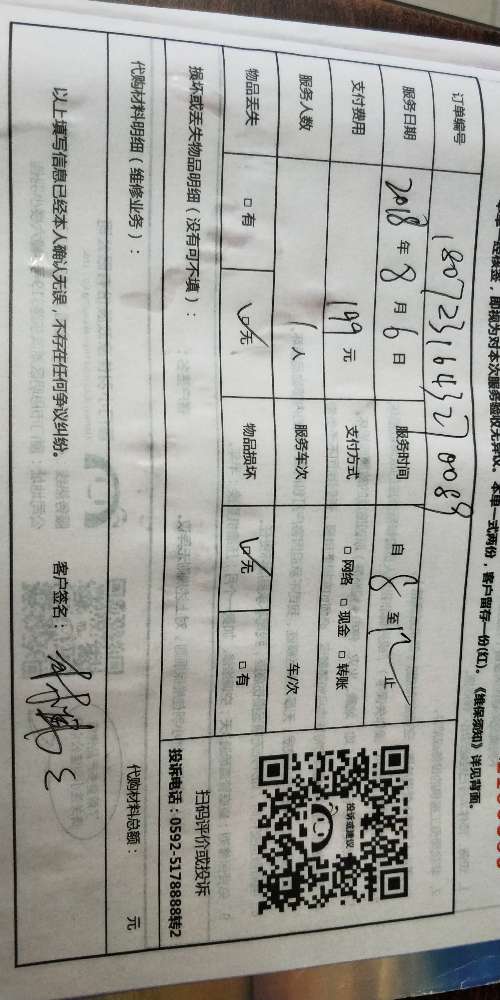 本单一式两份，客户留存一份(红)。《维保须知》详见背面。
订单编号 1807231643270089
服务日期 2018 年 8 月 6 日 服务时间 自 8 至 12 止
支付费用 199 元 支付方式 □ 网络 □ 现金 □ 转账
服务人数 1 人 服务车次 车/次
物品丢失 □ 有 ☑ 无 物品损坏 ☑ 无 □ 有
损坏或丢失物品明细（没有可不填）：
投诉或建议
扫码评价或投诉
投诉电话：0592-5178888转2
代购材料明细（维修业务）： 代购材料总额： 元
以上填写信息已经本人确认无误，不存在任何争议纠纷。 客户签名：